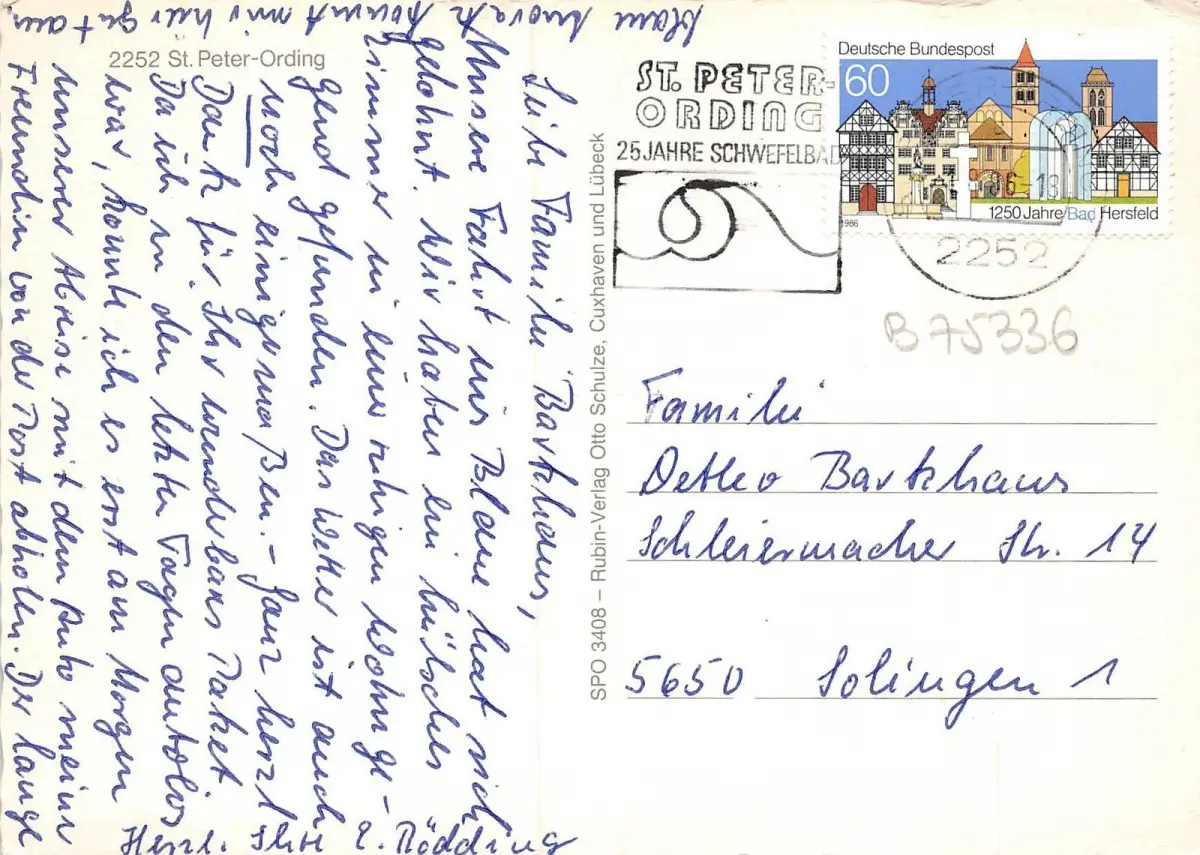 2252 St. Peter-Ording
Liebe Familie Barkhaus,
Unsere Fahrt ins Blaue hat sich
gelohnt. Wir haben ein hübsches
Zimmer in einer ruhigen Wohnge-
gend gefunden. Das Wetter ist auch
noch einigermaßen. – Ganz herzl
Dank für Ihr wunderbares Paket.
Da ich in den letzten Tagen autolos
war, konnte ich es erst am Morgen
unserer Abreise mit dem Auto meiner
Freundin von der Post abholen. Der lange
blaue Anorak kommt mir hier gut
Herzl. Ihre E. Rödding
SPO 3408 – Rubin-Verlag Otto Schulze, Cuxhaven und Lübeck
ST. PETER-
ORDING
25 JAHRE SCHWEFELBAD
Deutsche Bundespost
60
1250 Jahre Bad Hersfeld
1986
2252
B 75336
Familie
Detlev Barkhaus
Schleiermacher Str. 14
5650 Solingen 1